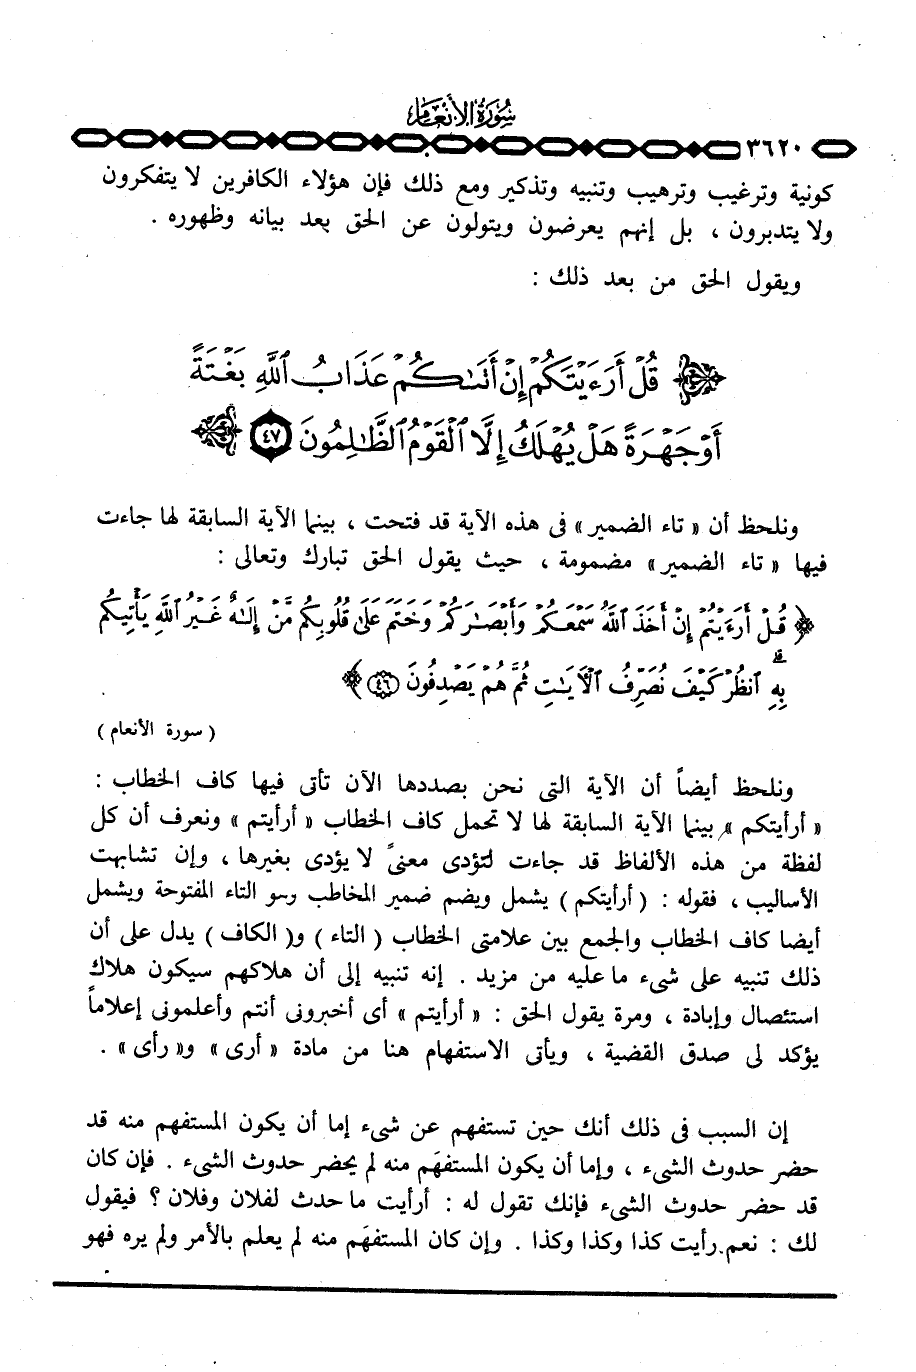 سورة الأنعام
٣٦٢٠
كونية وترغيب وترهيب وتنبيه وتذكير ومع ذلك فإن هؤلاء الكافرين لا يتفكرون
ولا يتدبرون ، بل إنهم يعرضون ويتولون عن الحق بعد بيانه وظهوره .
ويقول الحق من بعد ذلك :
قُلْ أَرَءَيْتَكُمْ إِنْ أَتَىٰكُمْ عَذَابُ ٱللَّهِ بَغْتَةً
أَوْ جَهْرَةً هَلْ يُهْلَكُ إِلَّا ٱلْقَوْمُ ٱلظَّٰلِمُونَ ٤٧
ونلحظ أن « تاء الضمير » فى هذه الآية قد فتحت ، بينما الآية السابقة لها جاءت
فيها « تاء الضمير » مضمومة ، حيث يقول الحق تبارك وتعالى :
﴿ قُلْ أَرَءَيْتُمْ إِنْ أَخَذَ ٱللَّهُ سَمْعَكُمْ وَأَبْصَٰرَكُمْ وَخَتَمَ عَلَىٰ قُلُوبِكُم مَّنْ إِلَٰهٌ غَيْرُ ٱللَّهِ يَأْتِيكُم
بِهِ ۗ ٱنظُرْ كَيْفَ نُصَرِّفُ ٱلْءَايَٰتِ ثُمَّ هُمْ يَصْدِفُونَ ٤٦ ﴾
( سورة الأنعام )
ونلحظ أيضاً أن الآية التى نحن بصددها الآن تأتى فيها كاف الخطاب :
« أرأيتكم » بينما الآية السابقة لها لا تحمل كاف الخطاب « أرأيتم » ونعرف أن كل
لفظة من هذه الألفاظ قد جاءت لتؤدى معنىً لا يؤدى بغيرها ، وإن تشابهت
الأساليب ، فقوله : ( أرأيتكم ) يشمل ويضم ضمير المخاطب وهو التاء المفتوحة ويشمل
أيضا كاف الخطاب والجمع بين علامتى الخطاب ( التاء ) و( الكاف ) يدل على أن
ذلك تنبيه على شىء ما عليه من مزيد . إنه تنبيه إلى أن هلاكهم سيكون هلاك
استئصال وإبادة ، ومرة يقول الحق : « أرأيتم » أى أخبرونى أنتم وأعلمونى إعلاماً
يؤكد لى صدق القضية ، ويأتى الاستفهام هنا من مادة « أرى » و« رأى » .
إن السبب فى ذلك أنك حين تستفهم عن شىء إما أن يكون المستفهم منه قد
حضر حدوث الشىء ، وإما أن يكون المستفهَم منه لم يحضر حدوث الشىء . فإن كان
قد حضر حدوث الشىء فإنك تقول له : أرأيت ما حدث لفلان وفلان ؟ فيقول
لك : نعم رأيت كذا وكذا وكذا . وإن كان المستفهَم منه لم يعلم بالأمر ولم يره فهو